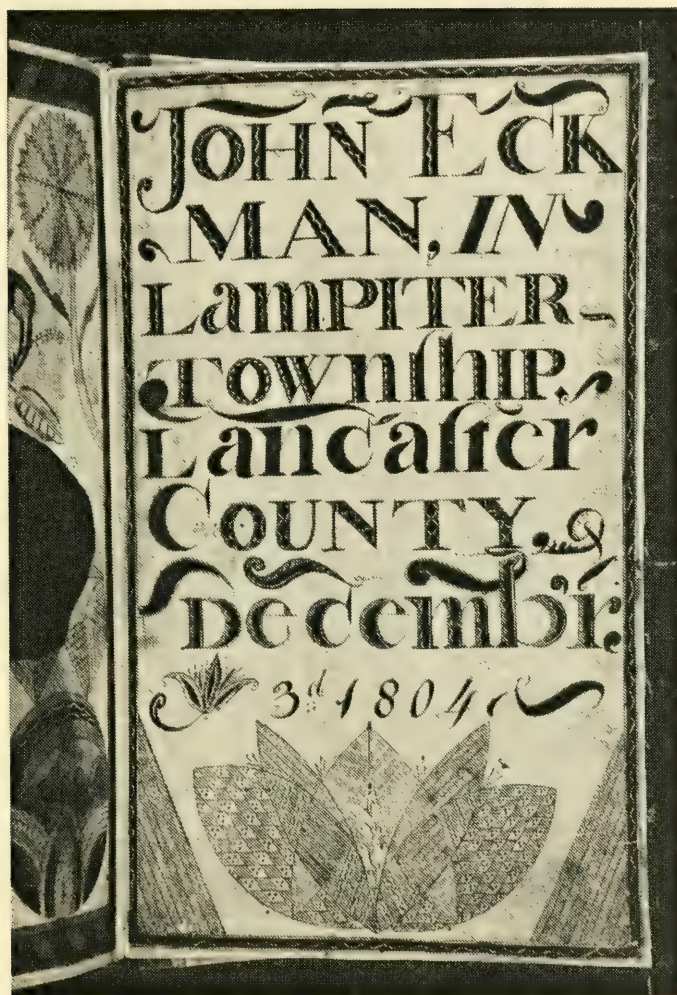 JOHN ECK
MAN, IN
LamPITER-
TOWnſhIP.
Lancaſter
COUNTY
Decembʼr.
3d 1804